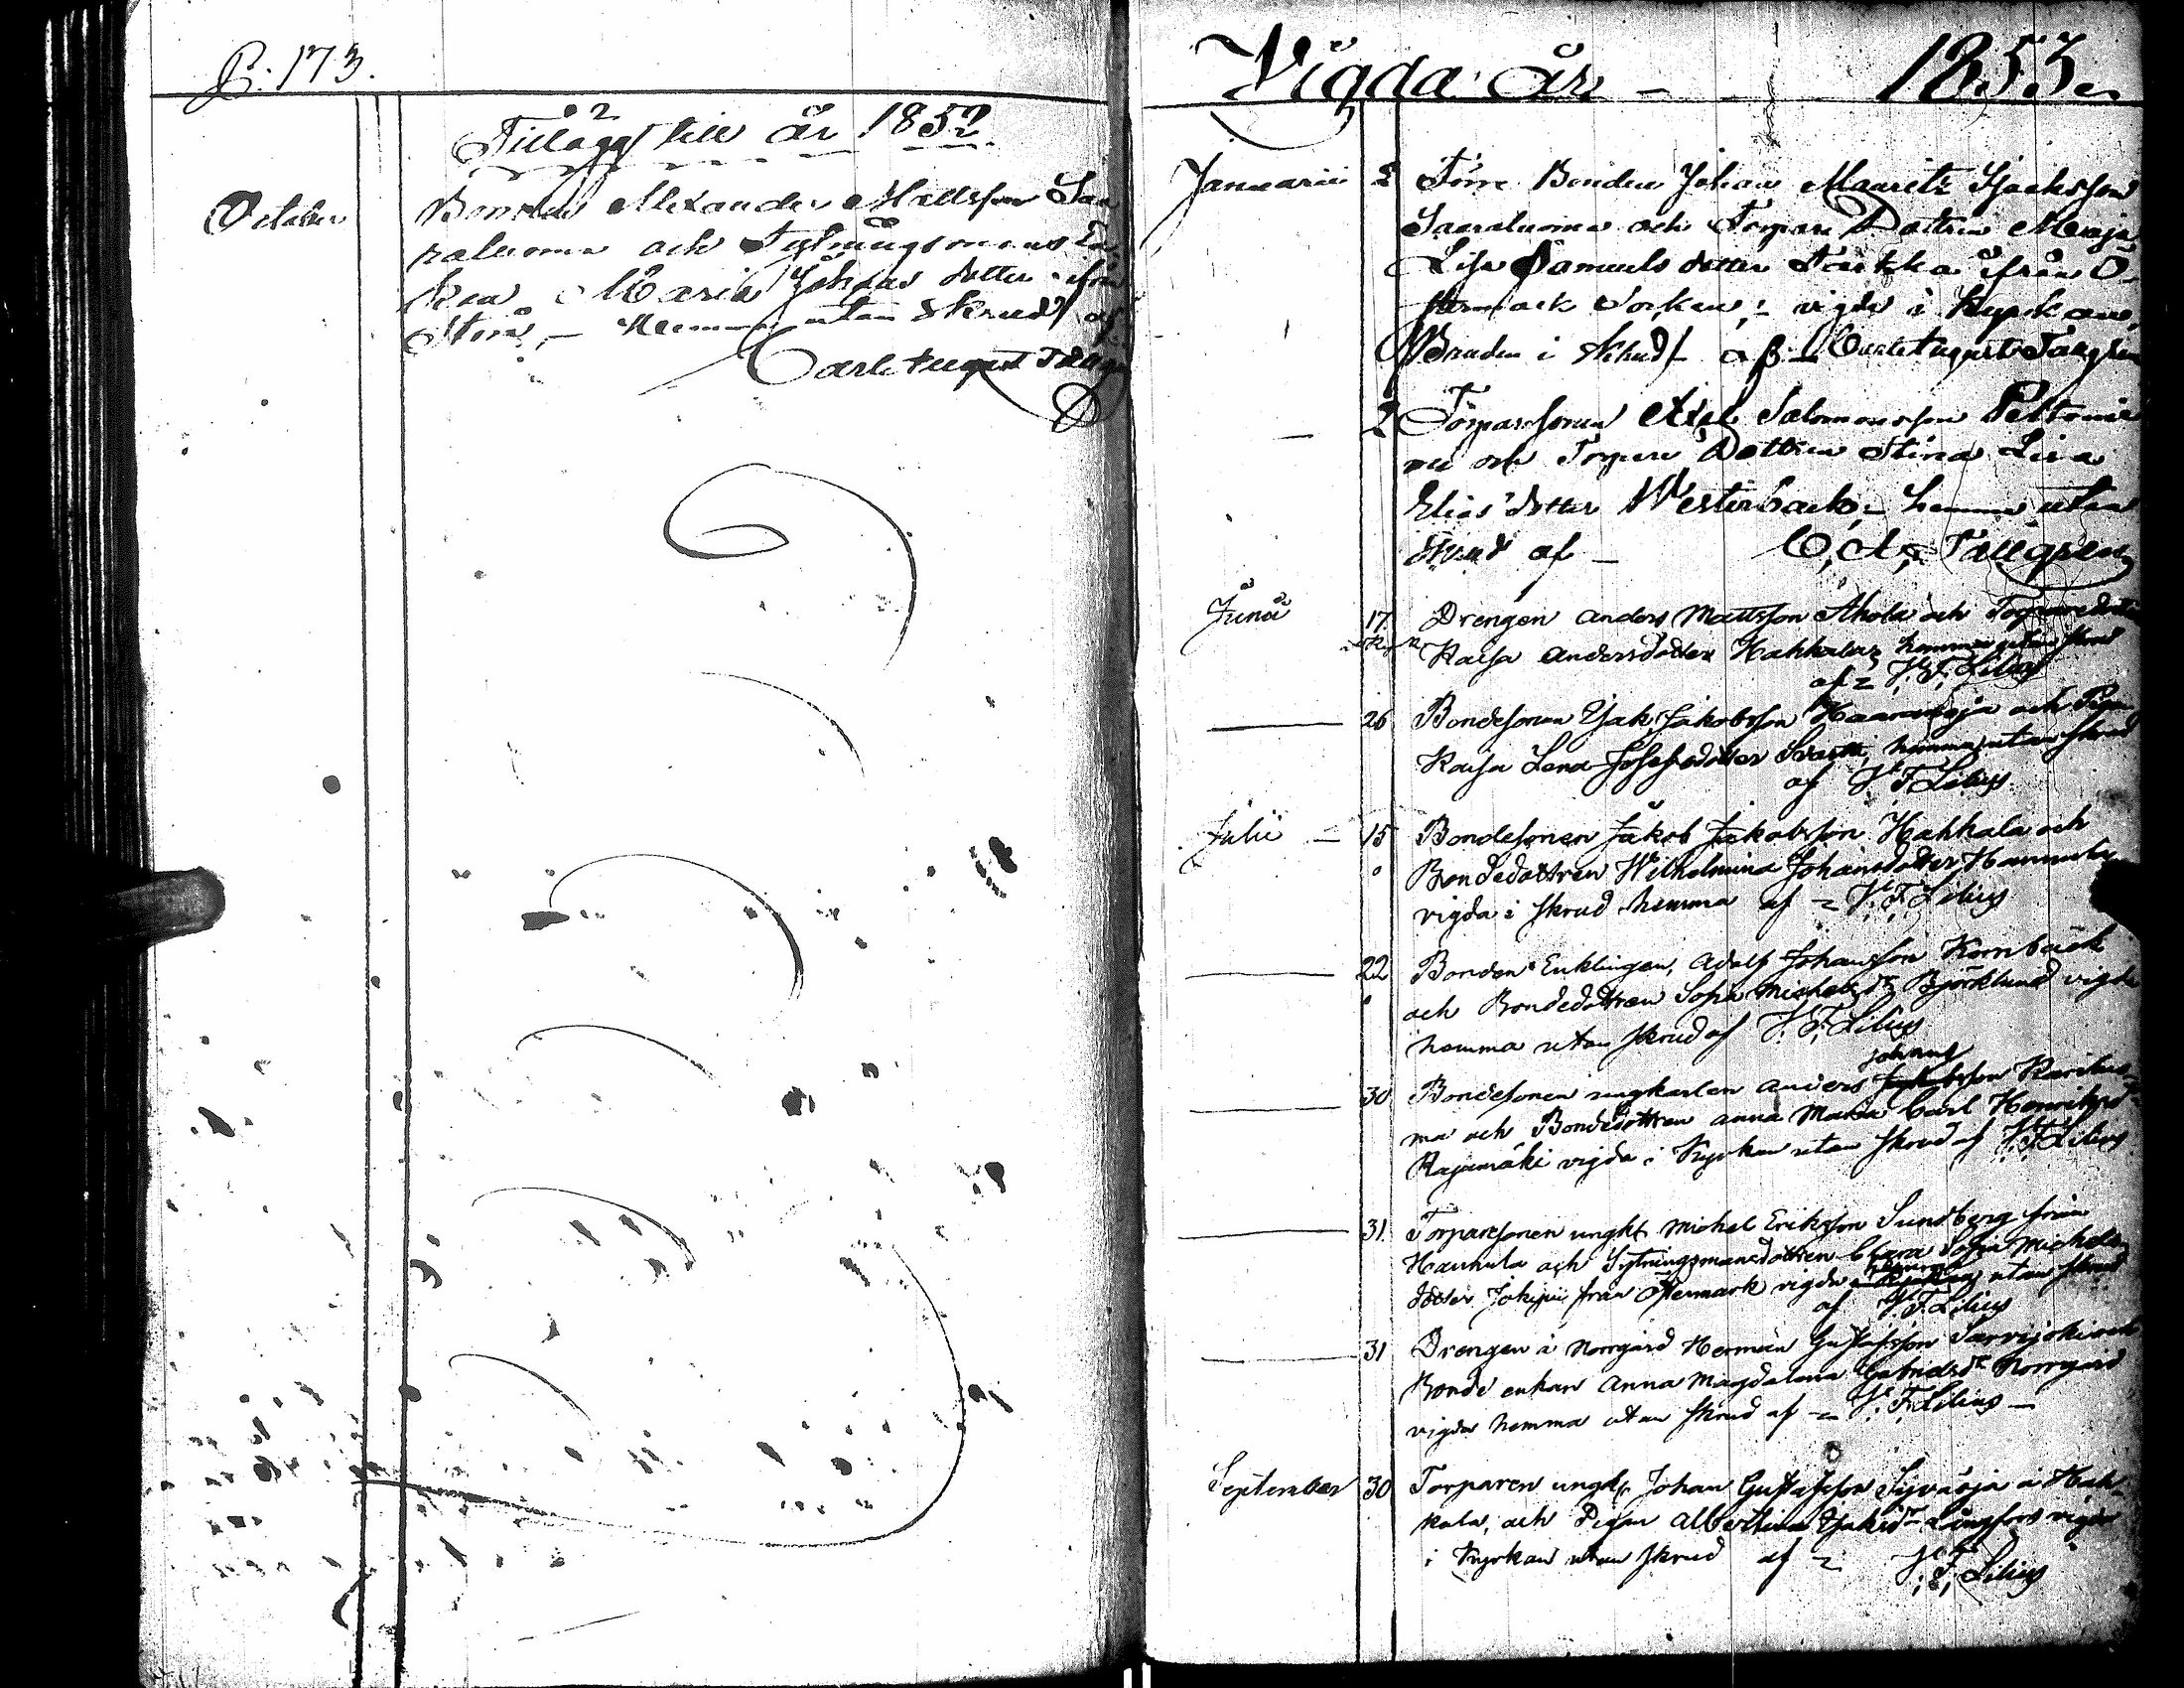 P. 173.
Tillägg till år 1852
October
Bonden Alexander Mattsson Saa
raluoma och Sytningsmans En
kea Maria Johans dotter ifrån
Storå, - Hemma utan Skrud af
Carl August Tallgren
Vigda år - 1853.
Januarii 2 Förre Bonden Johan Mauritz Isacksson
Saaraluoma och Torpare Dottren Maja
Lisa Samuels dotter ifrån Ö
stermark Socken, - vigde i Kyrkan,
Bruden i Skrud af - Carl August Tallgren
2 Torparesonen Axel Salomonsson Peltonie
mi och Torpare Dottren Stina Lisa
Elias dotter Westerback, - hemma utan
Skrud af - C. A. Tallgren
Junii 17. Drengen Anders Mattsson Ahola och Torparedottren
Kaisa Andersdotter Hahkala, hemma utan skrud
af = V. F. Lilius
26 Bondesonen Isak Jakobsson Haaraoja och Pigan
Kaisa Lena Josefsdotter hemma utan skrud
af V. F. Lilius
Julii - 15 Bondesonen Jakob Jakobsson Hahkala och
Bondedottren Wilhelmina Johansdotter Hannula
vigda i skrud hemma af = V. F. Lilius
22 Bonden Enklingen, Adolf Johansson Kornbäck
och Bondedottren Sofia Michelsdr Björklund vigda
hemma utan skrud af V. F. Lilius
Johans
30 Bondesonen ungkarlen Anders son Karilus
ma och Bondedottren Anna Maria Carl Henriksdr
Rajamäki vigda i Kyrkan utan skrud af V. F. Lilius
31. Torparesonen ungk. Michel Eriksson Sundberg från
Hannula och Sytningsmansdottren Clara Sofia Michels
hemma
dotter Jokipii från Östermark vigda utan skrud
af V. F. Lilius
31 Drengen å Norrgård Herman Gustafsson Sarvijoki och
Bonde enkan Anna Magdalena Gabrielsdr Norrgård
vigda hemma utan skrud af = V. F. Lilius -
September 30 Torparen ungk. Johan Gustafsson Syväoja å Hah
kala, och Pigan Albertina Isaksdr Långfors vigda
i Kyrkan utan skrud af = V. F. Lilius